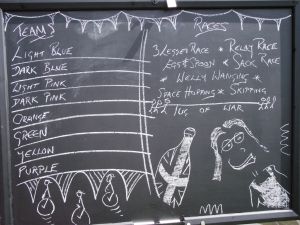 TEAMS
LIGHT BLUE
DARK BLUE
LIGHT PINK
DARK PINK
ORANGE
GREEN
YELLOW
PURPLE
RACES
3 LEGGED RACE * RELAY RACE
EGG & SPOON * SACK RACE
* WELLY WANGING *
SPACE HOPPING * SKIPPING
TUG OF WAR